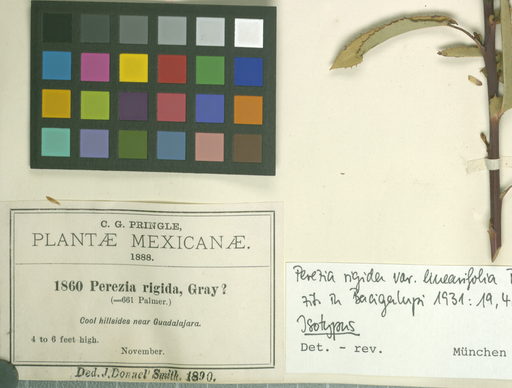 C. G. PRINGLE,
PLANTÆ MEXICANÆ.
1888.
1860 Perezia rigida, Gray?
(=661 Palmer.)
Cool hillsides near Guadalajara.
4 to 6 feet high.
November.
Ded. J. Donnel Smith. 1890.
Perezia rigida var. linearifolia
in Bacigalupi 1931: 19, 4
Isotypus
Det. - rev. München